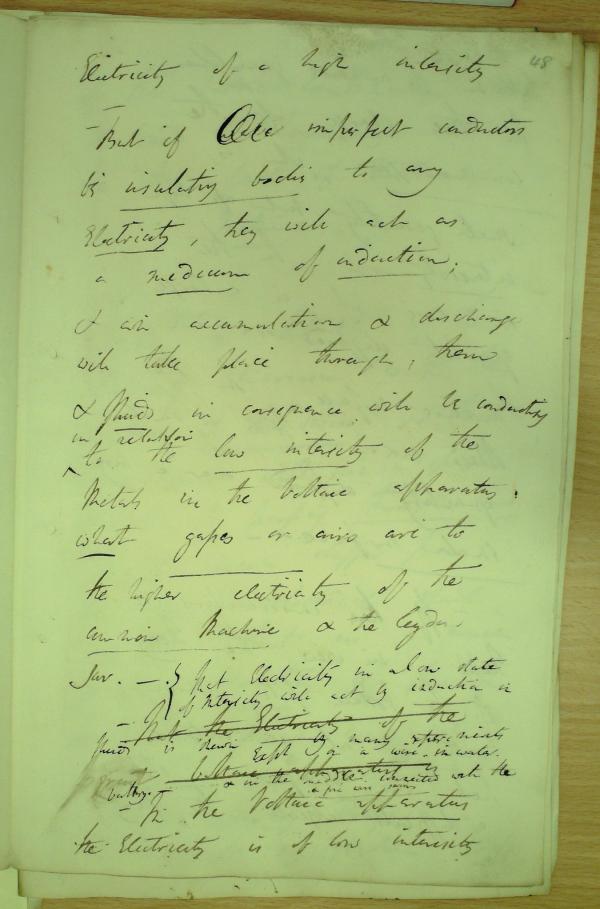 48
Electricity of a high intensity
- But if imperfect conductors
be insulating bodies to any
Electricity, they will act as
a medium of induction;
& an accumulation & discharge
will take place through, them
& fluids in consequence will be conducting
in relation
to the low intensity of the
Metals in the Voltaic apparatus.
what gases or airs are to
the higher electricity of the
common Machine & the leyden.
That Electricity in a low state
of Intensity will act by induction in
But the Electricity of the
fluids is shewn by many experiments
Expt of a wire in water.
Voltaic apparatus is
& in the middle connected with the
battery.
- In the Voltaic apparatus
the Electricity is of low intensity